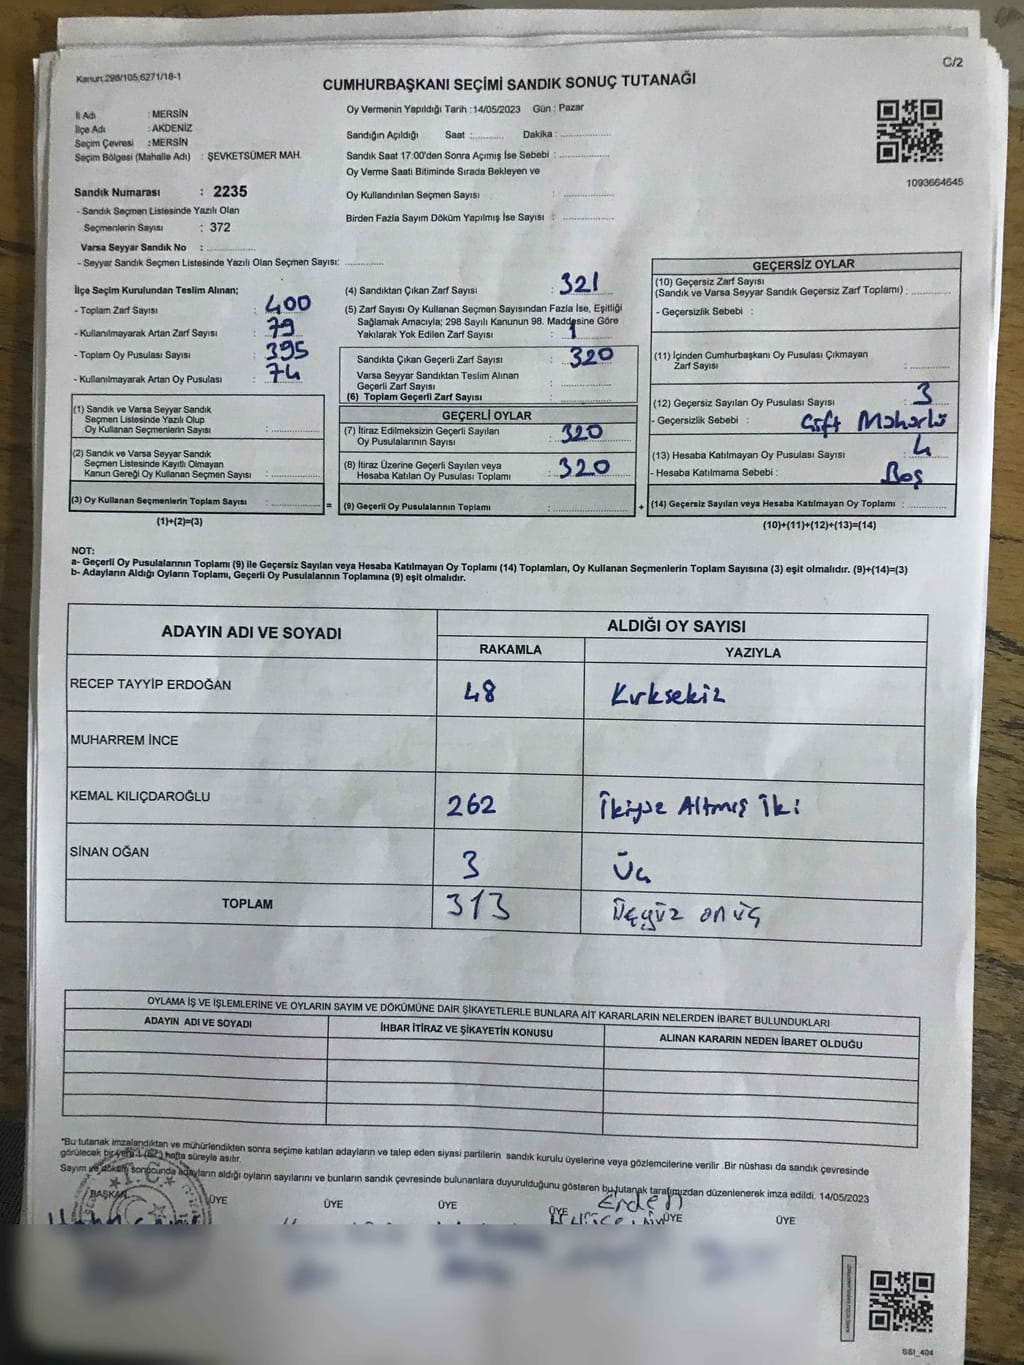 Kanun:298/105,6271/18-1
C/2
CUMHURBAŞKANI SEÇİMİ SANDIK SONUÇ TUTANAĞI
İl Adı : MERSİN
İlçe Adı : AKDENİZ
Seçim Çevresi : MERSİN
Seçim Bölgesi (Mahalle Adı) : ŞEVKETSÜMER MAH.
Sandık Numarası : 2235
- Sandık Seçmen Listesinde Yazılı Olan
Seçmenlerin Sayısı : 372
Varsa Seyyar Sandık No : ...............
- Seyyar Sandık Seçmen Listesinde Yazılı Olan Seçmen Sayısı: ............
Oy Vermenin Yapıldığı Tarih : 14/05/2023 Gün : Pazar
Sandığın Açıldığı Saat :.......... Dakika : ...............
Sandık Saat 17:00'den Sonra Açımış İse Sebebi : ...............
Oy Verme Saati Bitiminde Sırada Bekleyen ve
Oy Kullandırılan Seçmen Sayısı : ...............
Birden Fazla Sayım Döküm Yapılmış İse Sayısı : ...............
1093664645
İlçe Seçim Kurulundan Teslim Alınan;
- Toplam Zarf Sayısı : 400
- Kullanılmayarak Artan Zarf Sayısı : 79
- Toplam Oy Pusulası Sayısı : 395
- Kullanılmayarak Artan Oy Pusulası : 74
(1) Sandık ve Varsa Seyyar Sandık
Seçmen Listesinde Yazılı Olup
Oy Kullanan Seçmenlerin Sayısı : ...............
(2) Sandık ve Varsa Seyyar Sandık
Seçmen Listesinde Kayıtlı Olmayan
Kanun Gereği Oy Kullanan Seçmen Sayısı : ...............
(3) Oy Kullanan Seçmenlerin Toplam Sayısı : ............... =
(1)+(2)=(3)
(4) Sandıktan Çıkan Zarf Sayısı : 321
(5) Zarf Sayısı Oy Kullanan Seçmen Sayısından Fazla İse, Eşitliği
Sağlamak Amacıyla; 298 Sayılı Kanunun 98. Maddesine Göre
Yakılarak Yok Edilen Zarf Sayısı : 1
Sandıkta Çıkan Geçerli Zarf Sayısı : 320
Varsa Seyyar Sandıktan Teslim Alınan
Geçerli Zarf Sayısı : ...............
(6) Toplam Geçerli Zarf Sayısı : ...............
GEÇERLİ OYLAR
(7) İtiraz Edilmeksizin Geçerli Sayılan
Oy Pusulalarının Sayısı : 320
(8) İtiraz Üzerine Geçerli Sayılan veya
Hesaba Katılan Oy Pusulası Toplamı : 320
(9) Geçerli Oy Pusulalarının Toplamı : ............... +
GEÇERSİZ OYLAR
(10) Geçersiz Zarf Sayısı
(Sandık ve Varsa Seyyar Sandık Geçersiz Zarf Toplamı) : ............
- Geçersizlik Sebebi :
(11) İçinden Cumhurbaşkanı Oy Pusulası Çıkmayan
Zarf Sayısı : ............
(12) Geçersiz Sayılan Oy Pusulası Sayısı : 3
- Geçersizlik Sebebi : Çift Mühürlü
(13) Hesaba Katılmayan Oy Pusulası Sayısı : 4
- Hesaba Katılmama Sebebi : Boş
(14) Geçersiz Sayılan veya Hesaba Katılmayan Oy Toplamı : ............
(10)+(11)+(12)+(13)=(14)
NOT:
a- Geçerli Oy Pusulalarının Toplamı (9) ile Geçersiz Sayılan veya Hesaba Katılmayan Oy Toplamı (14) Toplamları, Oy Kullanan Seçmenlerin Toplam Sayısına (3) eşit olmalıdır. (9)+(14)=(3)
b- Adayların Aldığı Oyların Toplamı, Geçerli Oy Pusulalarının Toplamına (9) eşit olmalıdır.
ADAYIN ADI VE SOYADI
ALDIĞI OY SAYISI
RAKAMLA YAZIYLA
RECEP TAYYİP ERDOĞAN 48 Kırksekiz
MUHARREM İNCE
KEMAL KILIÇDAROĞLU 262 İkiyüz Altmış İki
SİNAN OĞAN 3 Üç
TOPLAM 313 Üçyüz onüç
OYLAMA İŞ VE İŞLEMLERİNE VE OYLARIN SAYIM VE DÖKÜMÜNE DAİR ŞİKAYETLERLE BUNLARA AİT KARARLARIN NELERDEN İBARET BULUNDUKLARI
ADAYIN ADI VE SOYADI İHBAR İTİRAZ VE ŞİKAYETİN KONUSU ALINAN KARARIN NEDEN İBARET OLDUĞU
*Bu tutanak imzalandıktan ve mühürlendikten sonra seçime katılan adayların ve talep eden siyasi partilerin sandık kurulu üyelerine veya gözlemcilerine verilir .Bir nüshası da sandık çevresinde
görülecek bir yere 1 hafta süreyle asılır.
Sayım ve döküm sonucunda adayların aldığı oyların sayılarını ve bunların sandık çevresinde bulunanlara duyurulduğunu gösteren bu tutanak tarafımızdan düzenlenerek imza edildi. 14/05/2023
BAŞKAN ÜYE ÜYE ÜYE ÜYE ÜYE ÜYE
Erden
SSI_404